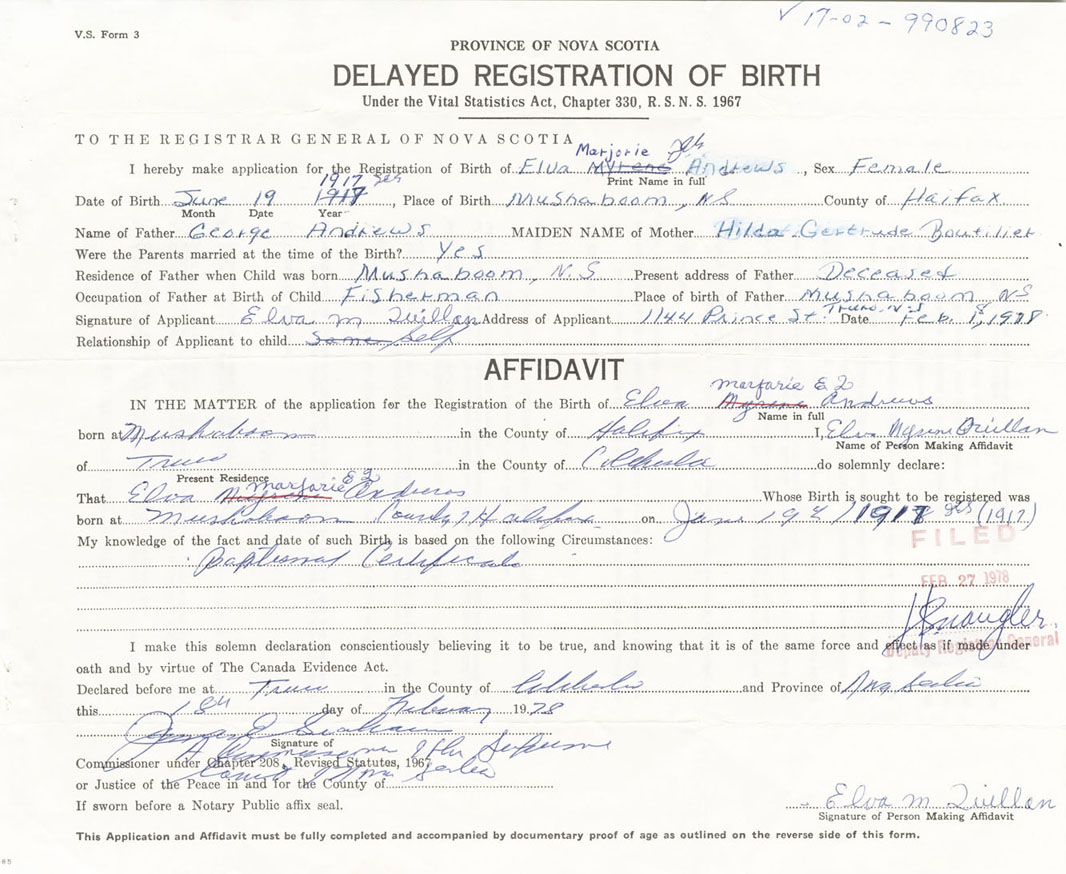 √ 17-02-990823
V.S. Form 3
PROVINCE OF NOVA SCOTIA
DELAYED REGISTRATION OF BIRTH
Under the Vital Statistics Act, Chapter 330, R.S.N.S. 1967
TO THE REGISTRAR GENERAL OF NOVA SCOTIA
Marjorie
I hereby make application for the Registration of Birth of Elva Myrene Andrews, Sex Female
Print Name in full
1917
Date of Birth June 19 1917, Place of Birth Mushaboom, NS County of Halifax
Month Date Year
Name of Father George Andrews MAIDEN NAME of Mother Hilda Gertrude Boutilier
Were the Parents married at the time of the Birth? Yes
Residence of Father when Child was born Mushaboom, N.S Present address of Father Deceased
Occupation of Father at Birth of Child Fisherman Place of birth of Father Mushaboom, NS
Signature of Applicant Elva M Quillan Address of Applicant 1144 Prince St. Truro, N.S Date Feb. 1978
Relationship of Applicant to child Same Self
AFFIDAVIT
Marjorie
IN THE MATTER of the application for the Registration of the Birth of Elva Myrene Andrews
Name in full
born at Mushaboom in the County of Halifax I, Elva Myrene Quillan
Name of Person Making Affidavit
of Truro in the County of Colchester do solemnly declare:
Present Residence
Marjorie
That Elva Myrene Andrews Whose Birth is sought to be registered was
born at Mushaboom County of Halifax on June 19 1917 (1917)
FILED
My knowledge of the fact and date of such Birth is based on the following Circumstances:
Baptismal Certificate
FEB 27 1978
I make this solemn declaration conscientiously believing it to be true, and knowing that it is of the same force and effect as if made under
Deputy Registrar General
oath and by virtue of The Canada Evidence Act.
Declared before me at Truro in the County of Colchester and Province of Nova Scotia
this 18th day of February 1978
Signature of
A Commissioner of the Supreme
Commissioner under Chapter 208, Revised Statutes, 1967
Court of Nova Scotia
or Justice of the Peace in and for the County of
If sworn before a Notary Public affix seal.
Elva M Quillan
Signature of Person Making Affidavit
This Application and Affidavit must be fully completed and accompanied by documentary proof of age as outlined on the reverse side of this form.